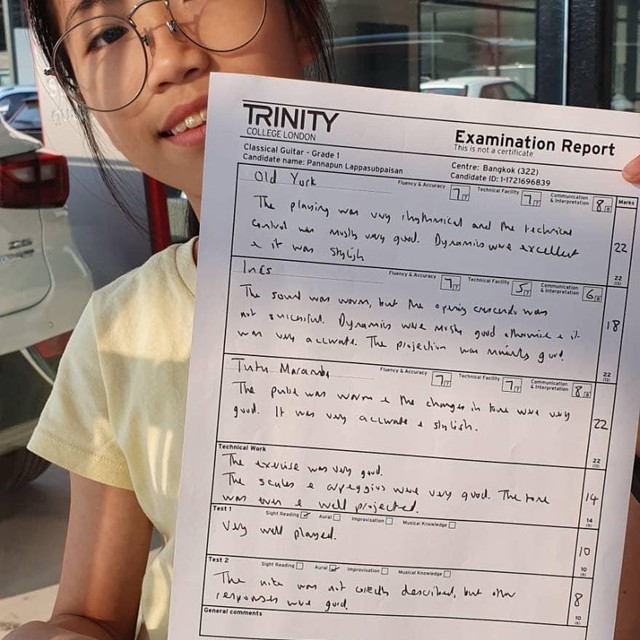 TRINITY
COLLEGE LONDON
Examination Report
This is not a certificate
Classical Guitar - Grade 1
Centre: Bangkok (322)
Candidate name: Pannapun Lappasubpaisan
Candidate ID: 1-1721696839
Old York Fluency & Accuracy 7 Technical Facility 7 Communication & Interpretation 8 Marks
The playing was very rhythmical and the technical
control was mostly very good. Dynamics were excellent
& it was stylish
22
22
Fluency & Accuracy 7 Technical Facility 5 Communication & Interpretation 6
The sound was warm, but the opening crescendo was
not successful. Dynamics were mostly good otherwise & it
was very accurate. The projection was mainly good.
18
22
Tutu Maramba Fluency & Accuracy 7 Technical Facility 7 Communication & Interpretation 8
The pulse was warm & the changes in tone were very
good. It was very accurate & stylish.
22
22
Technical Work
The exercise was very good.
The scales & arpeggios were very good. The tone
was even & well projected.
14
14
Test 1 Sight Reading Aural Improvisation Musical Knowledge
Very well played.
10
10
Test 2 Sight Reading Aural Improvisation Musical Knowledge
The was not described, but other
responses were good.
8
10
General comments